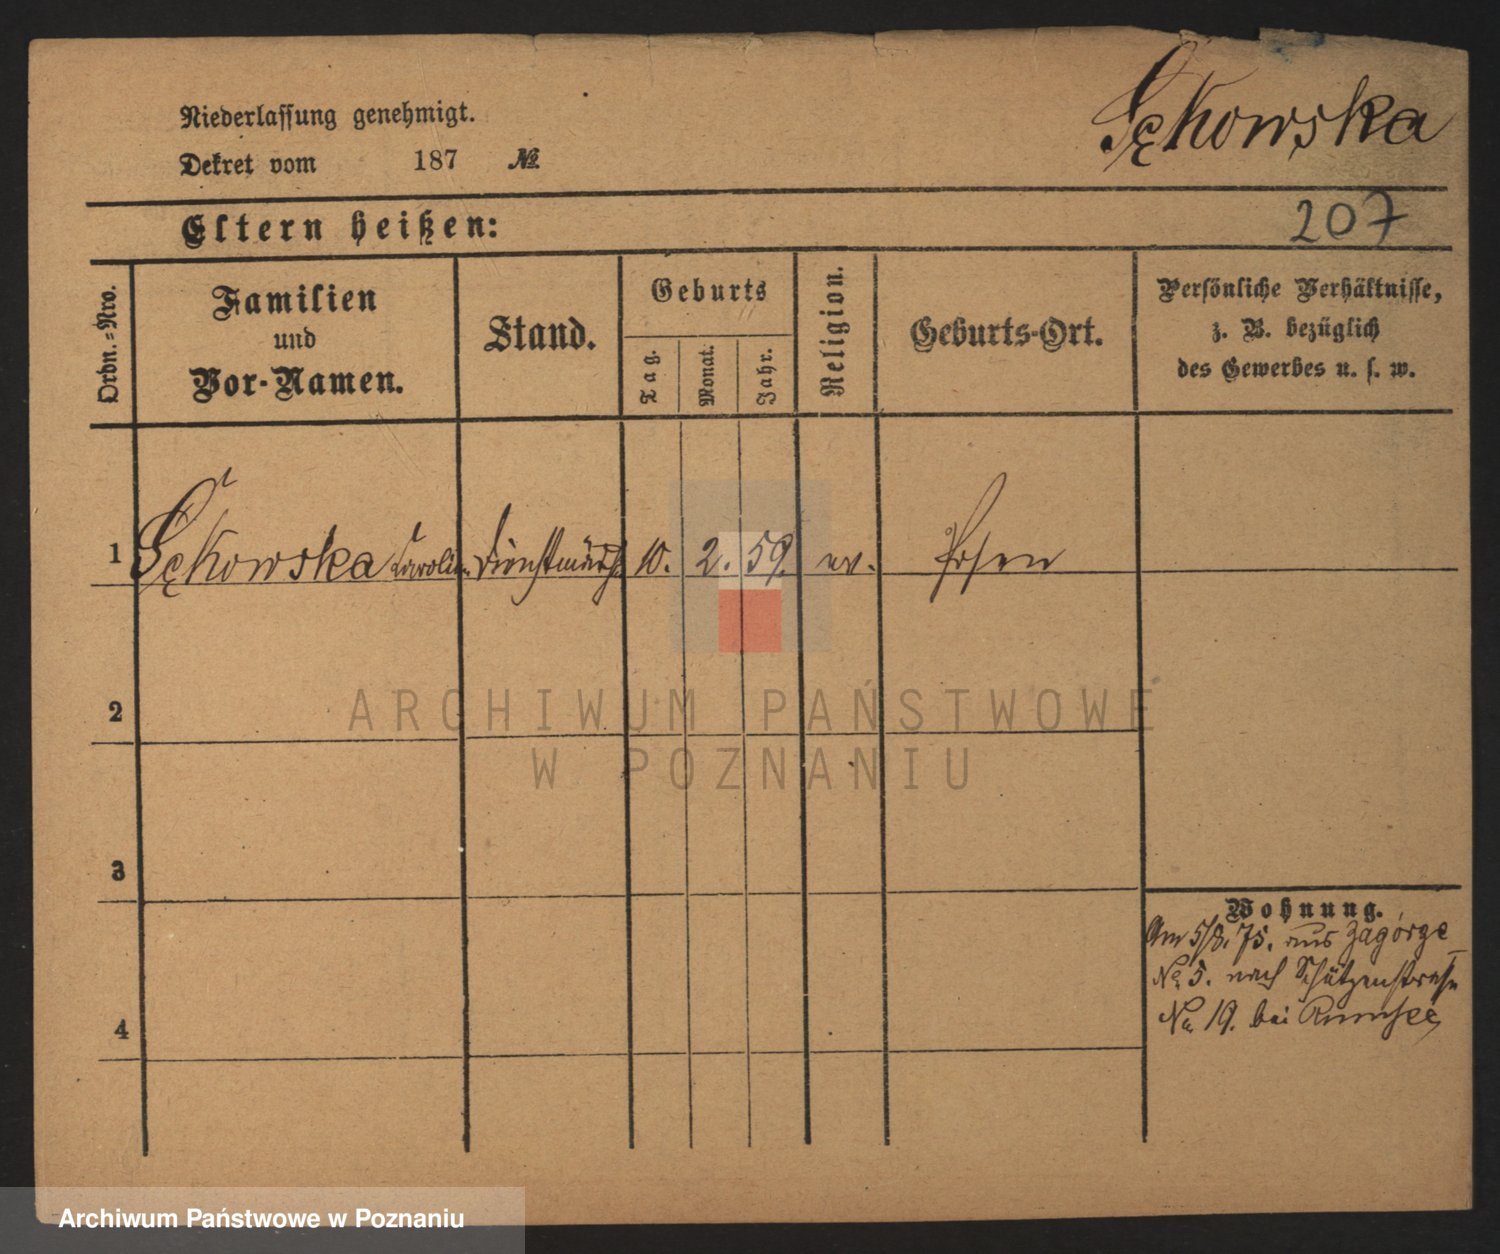 Niederlassung genehmigt.
Dekret vom 187 №
Sękowska
Eltern heißen:
207
Ordn.=Nro.
Familien
und
Vor-Namen.
Stand.
Geburts
Tag.
Monat.
Jahr.
Religion.
Geburts-Ort.
Persönliche Verhältnisse,
z. B. bezüglich
des Gewerbes u. s. w.
1 Sękowska Karolin. Dienstmädch. 10. 2. 59. ev. Posen
2
3
4
Wohnung.
Am 5/8. 75. aus Zagórze
No 5. nach Schützenstraße
No 19. bei
ARCHIWUM PAŃSTWOWE
W POZNANIU
Archiwum Państwowe w Poznaniu